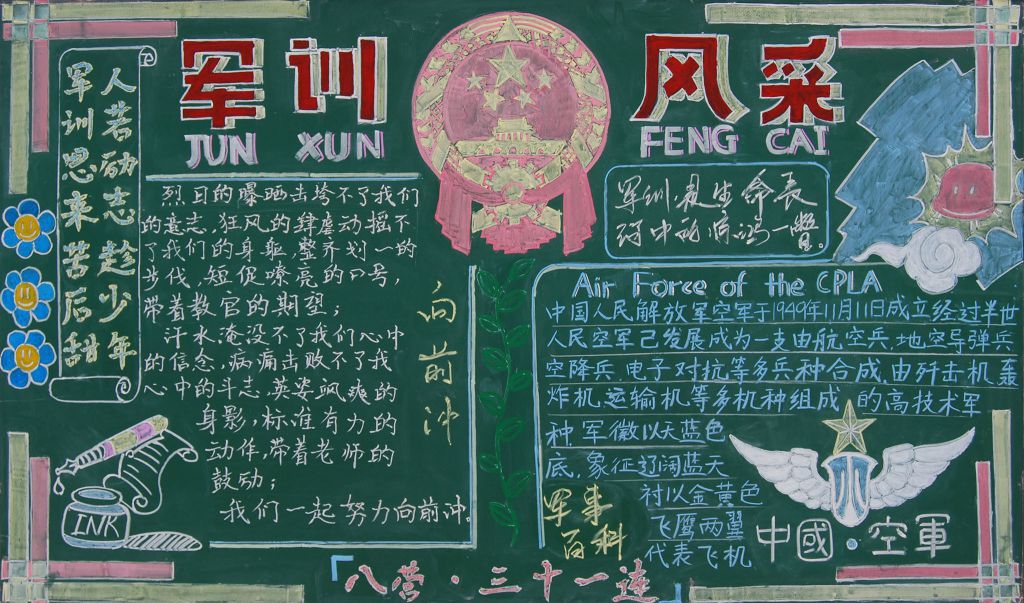 军训 风采
JUN XUN FENG CAI
人若励志趁少年
军训思来苦后甜
烈日的曝晒击垮不了我们
的意志，狂风的肆虐动摇不
了我们的身躯，整齐划一的
步伐，短促嘹亮的口号，
带着教官的期望；
汗水淹没不了我们心中
的信念，病痛击败不了我
心中的斗志，英姿飒爽的
身影，标准有力的
动作，带着老师的
鼓励；
我们一起努力向前冲。
向前冲
INK
军训，是生命长
河中的惊鸿一瞥。
Air Force of the CPLA
中国人民解放军空军于1949年11月11日成立经过半世
人民空军已发展成为一支由航空兵、地空导弹兵、
空降兵、电子对抗等多兵种合成，由歼击机、轰
炸机、运输机、等多机种组成 的高技术军
种 军徽以天蓝色
底，象征辽阔蓝天
衬以金黄色
飞鹰两翼
代表飞机
军事
百科
中國·空軍
八营·三十一连